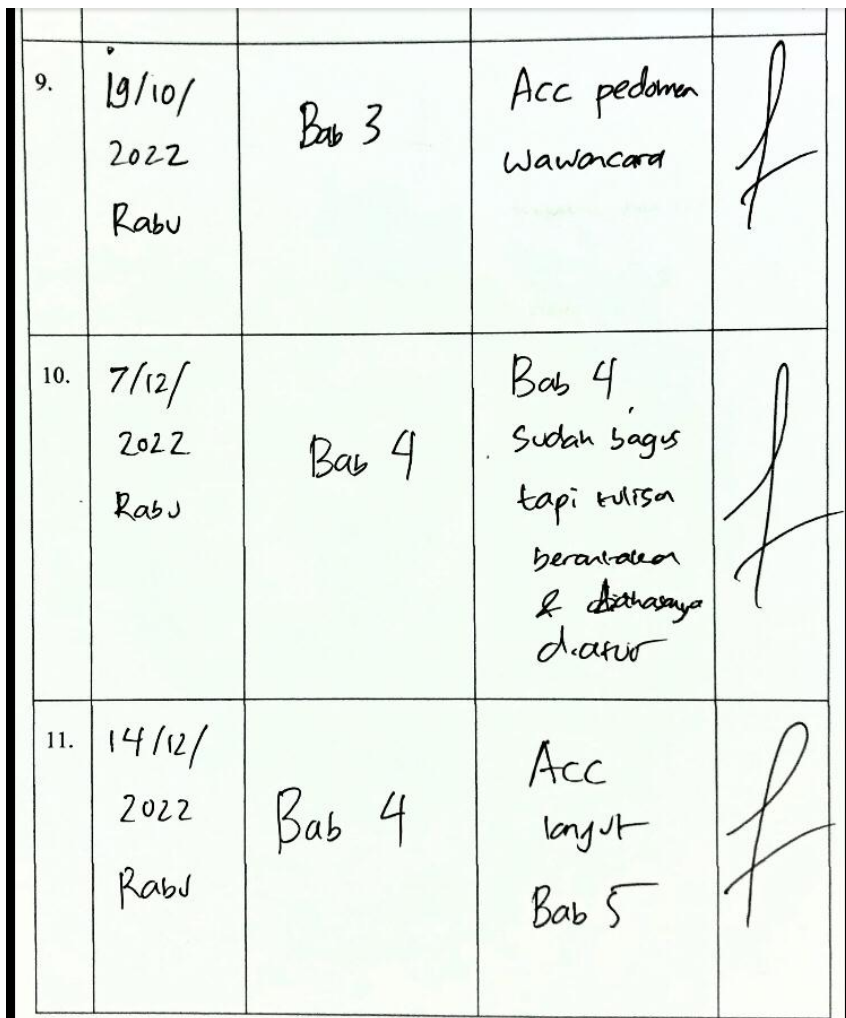 9.
19/10/
2022
Rabu
Bab 3
Acc pedoman
wawancara
10.
7/12/
2022
Rabu
Bab 4
Bab 4
Sudah bagus
tapi tulisan
berantakan
&
diatur
11.
14/12/
2022
Rabu
Bab 4
Acc
lanjut
Bab 5